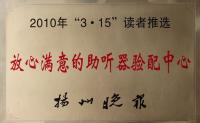 2010年“3·15”读者推选
放心满意的助听器验配中心
扬州晚报